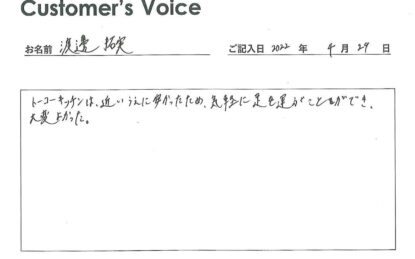 Customer's Voice
お名前 渡邉 拓実 ご記入日 2022 年 4 月 29 日
トーコーキッチンは、近いうえに安かったため、気軽に足を運ぶことができ、
大変よかった。